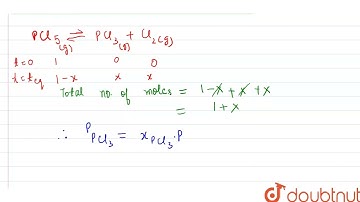 PCl5(g) ⇌ PCl3(g) + Cl2(g)
t=0 1 0 0
t=teq 1-x x x
Total no. of moles = 1-x+x+x
= 1+x
∴ PPCl3 = xPCl3.P
doubtnut